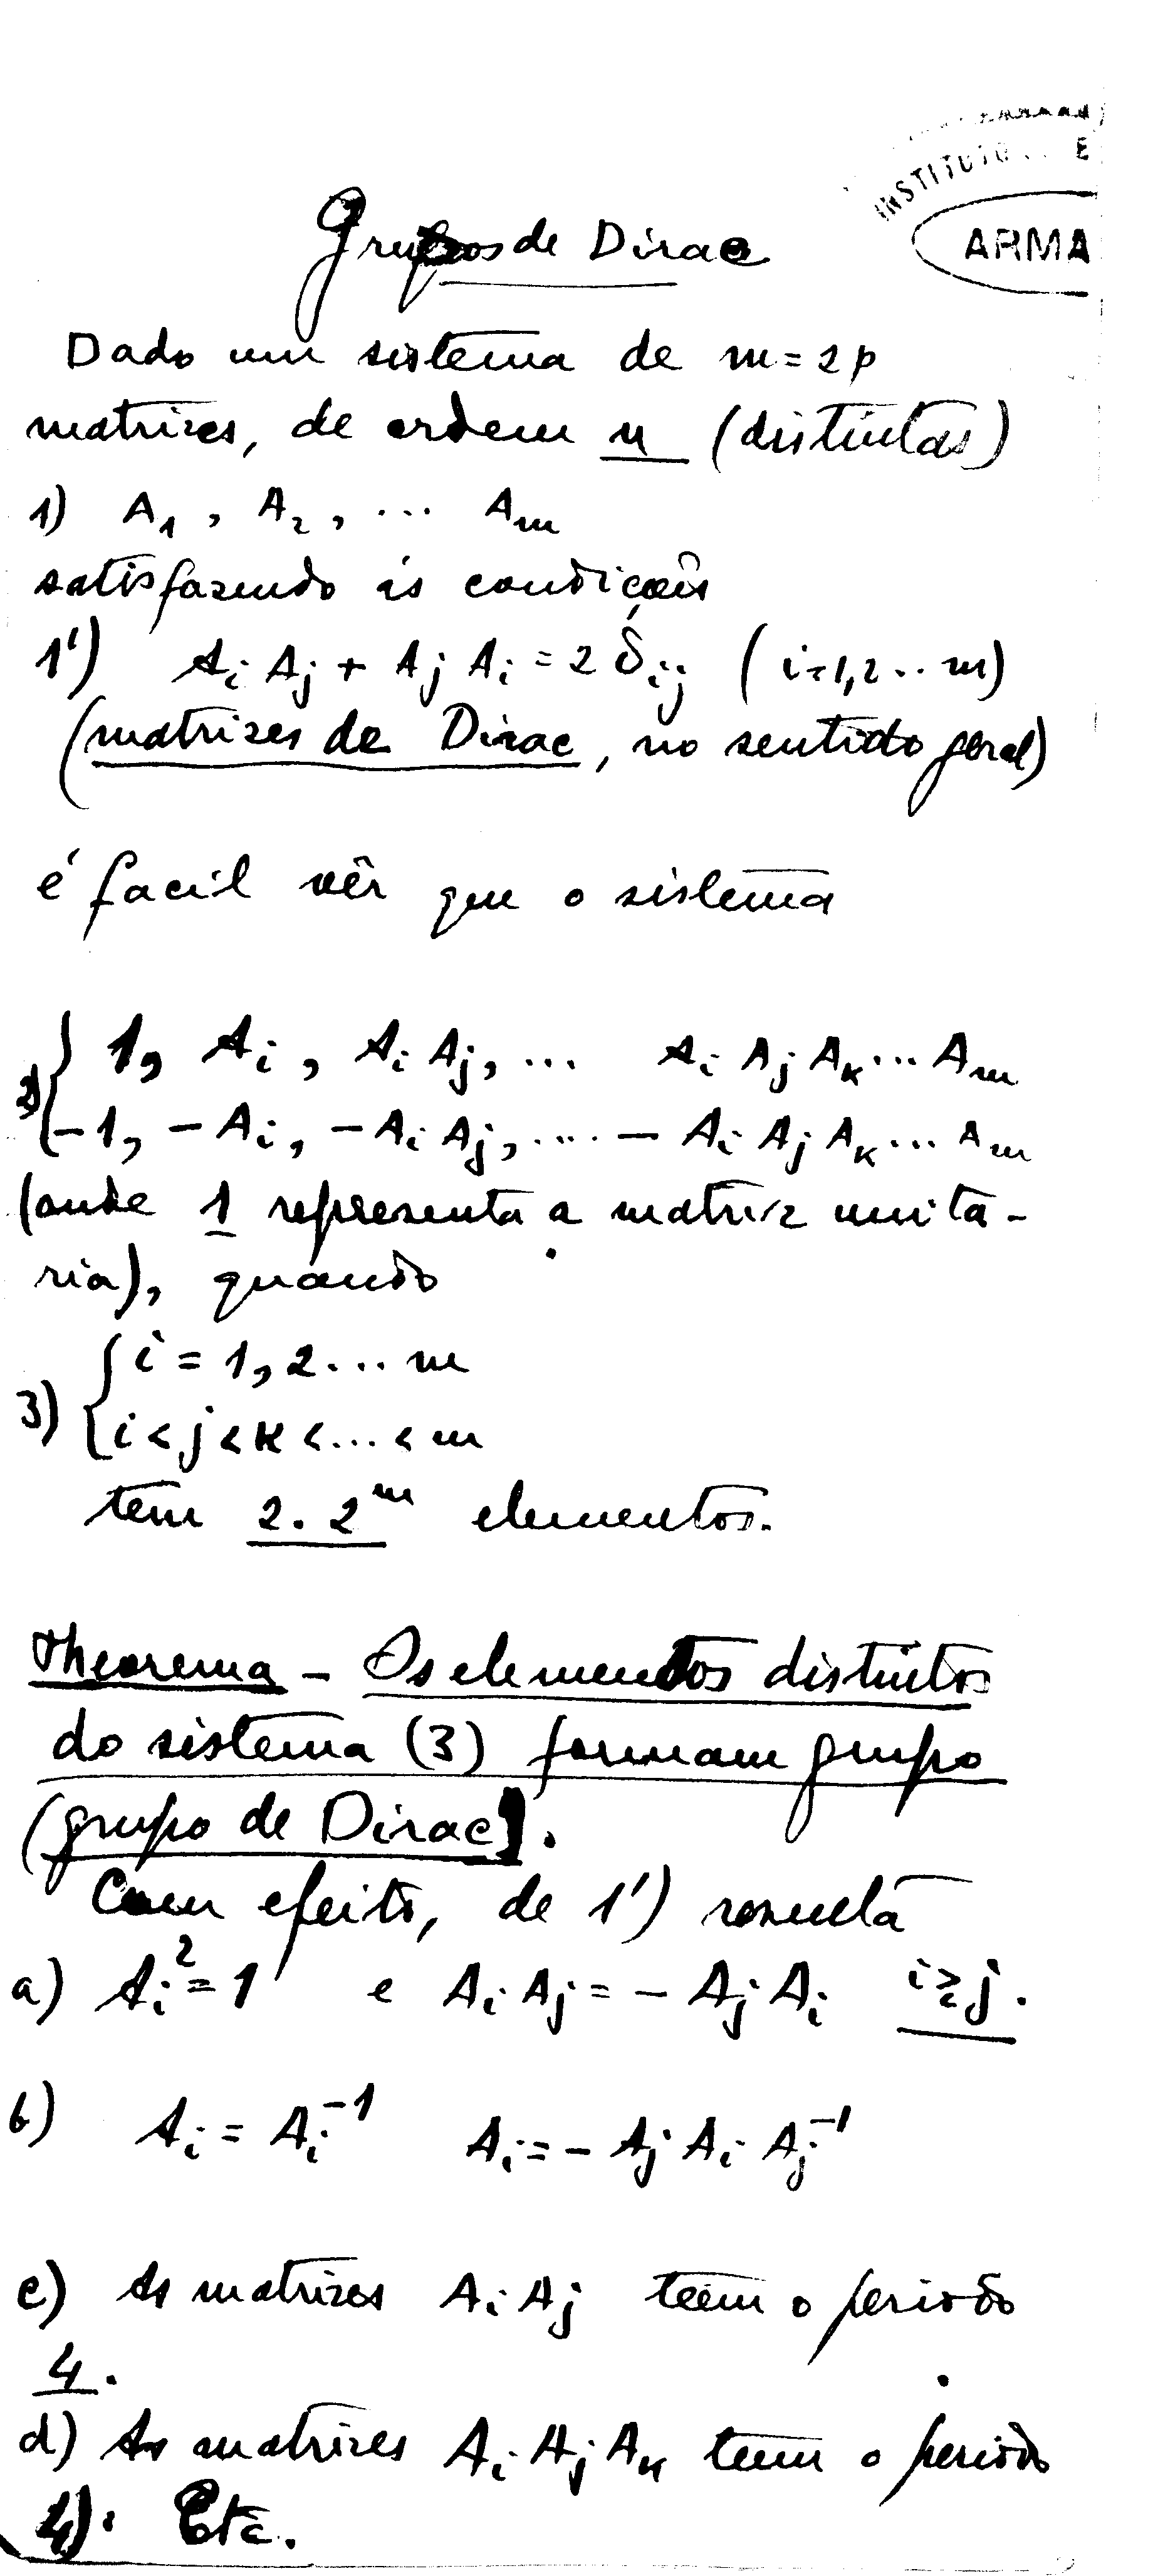 INSTITUTO E
ARMA
Grupos de Dirac
Dado um sistema de m = 2p
matrizes, de ordem n (distintas)
1) A₁, A₂, ... Aₘ
satisfazendo ás condições
1') Aᵢ Aⱼ + Aⱼ Aᵢ = 2 δᵢⱼ (i=1,2...m)
(matrizes de Dirac, no sentido geral)
é facil vêr que o sistema
2) { 1, Aᵢ, Aᵢ Aⱼ, ... Aᵢ Aⱼ Aₖ ... Aₘ
{ -1, -Aᵢ, -Aᵢ Aⱼ, .... - Aᵢ Aⱼ Aₖ ... Aₘ
(onde 1 representa a matriz unita-
ria), quando
3) { i = 1, 2 ... m
{ i < j < k < ... < m
tem 2.2ᵐ elementos.
Theorema - Os elementos distintos
do sistema (3) formam grupo
(grupo de Dirac).
Com efeito, de 1') resulta
a) Aᵢ² = 1 e Aᵢ Aⱼ = - Aⱼ Aᵢ i≷j.
b) Aᵢ = Aᵢ⁻¹ Aᵢ = - Aⱼ Aᵢ Aⱼ⁻¹
c) As matrizes Aᵢ Aⱼ teem o periodo
4.
d) As matrizes Aᵢ Aⱼ Aₖ teem o periodo
4). Etc.